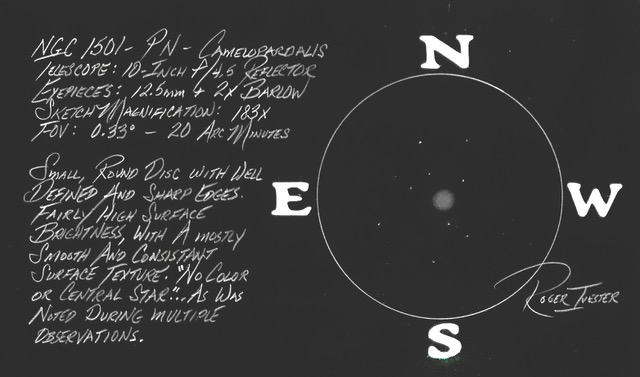 NGC 1501 - PN - CAMELOPARDALIS
TELESCOPE: 10-INCH F/4.5 REFLECTOR
EYEPIECES: 12.5MM + 2X BARLOW
SKETCH MAGNIFICATION: 183X
FOV: 0.33° - 20 ARC MINUTES
SMALL, ROUND DISC WITH WELL
DEFINED AND SHARP EDGES.
FAIRLY HIGH SURFACE
BRIGHTNESS, WITH A MOSTLY
SMOOTH AND CONSISTANT
SURFACE TEXTURE. "NO COLOR
OR CENTRAL STAR"... AS WAS
NOTED DURING MULTIPLE
OBSERVATIONS.
N
E
W
S
ROGER IVESTER